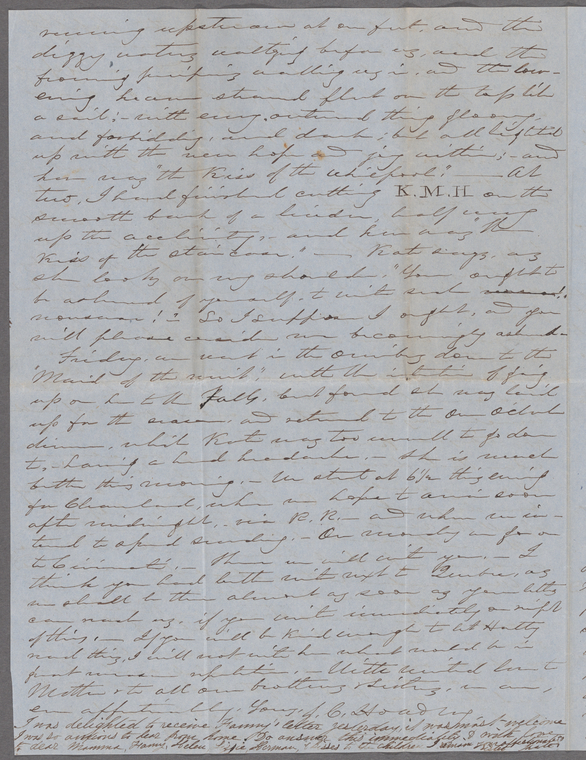 running upstream at our feet, and the
dizzy waters waltzing before us, and the
foaming walling us in, and the
strand flat on the top like
a sail; with every outward thing gloomy,
and forbidding, and dark; but all lighted
up with the new hope and joy within; and
here was "the Kiss of the whirlpool." — At
two, I had finished cutting K.M.H on the
smooth bark of a linden, half way
up the acclivity, and here was the
"Kiss of the staircase." — Kate says, as
she looks on my shoulder, "You ought to
be ashamed of yourself, to write such
nonsense!" So I suppose I ought, and you
will please consider me becomingly
Friday, we went in the omnibus down to the
"Maid of the mist", with the intention of going
up on her to the Falls, but found she was laid
up for the season, and returned to the One Oclock
dinner, which Kate was too unwell to go down
to, having a hard headache. — She is much
better this morning. — We start at 6½ this evening
for Cleaveland, where we hope to arrive soon
after midnight, via R. R. — and where we in-
tend to spend sunday. — On monday we go on
to Cincinnati. — Then we will write you. — I
think you had better write next to Quebec, as
we shall be there almost as soon as your letter
can reach us, if you write immediately on receipt
of this. — If you will be kind enough to let Hatty
read this, I will not write her what would be in
great measure repetition. — With united love to
Mother & to all our brothers & sisters, we are,
affectionately Yours, J. C. Howard
I was delighted to receive Fanny's letter yesterday, it was most welcome
I was so anxious to hear from home. Do answer this immediately. With love
to dear Mamma, Fanny, Helen Herman, to the children I remain